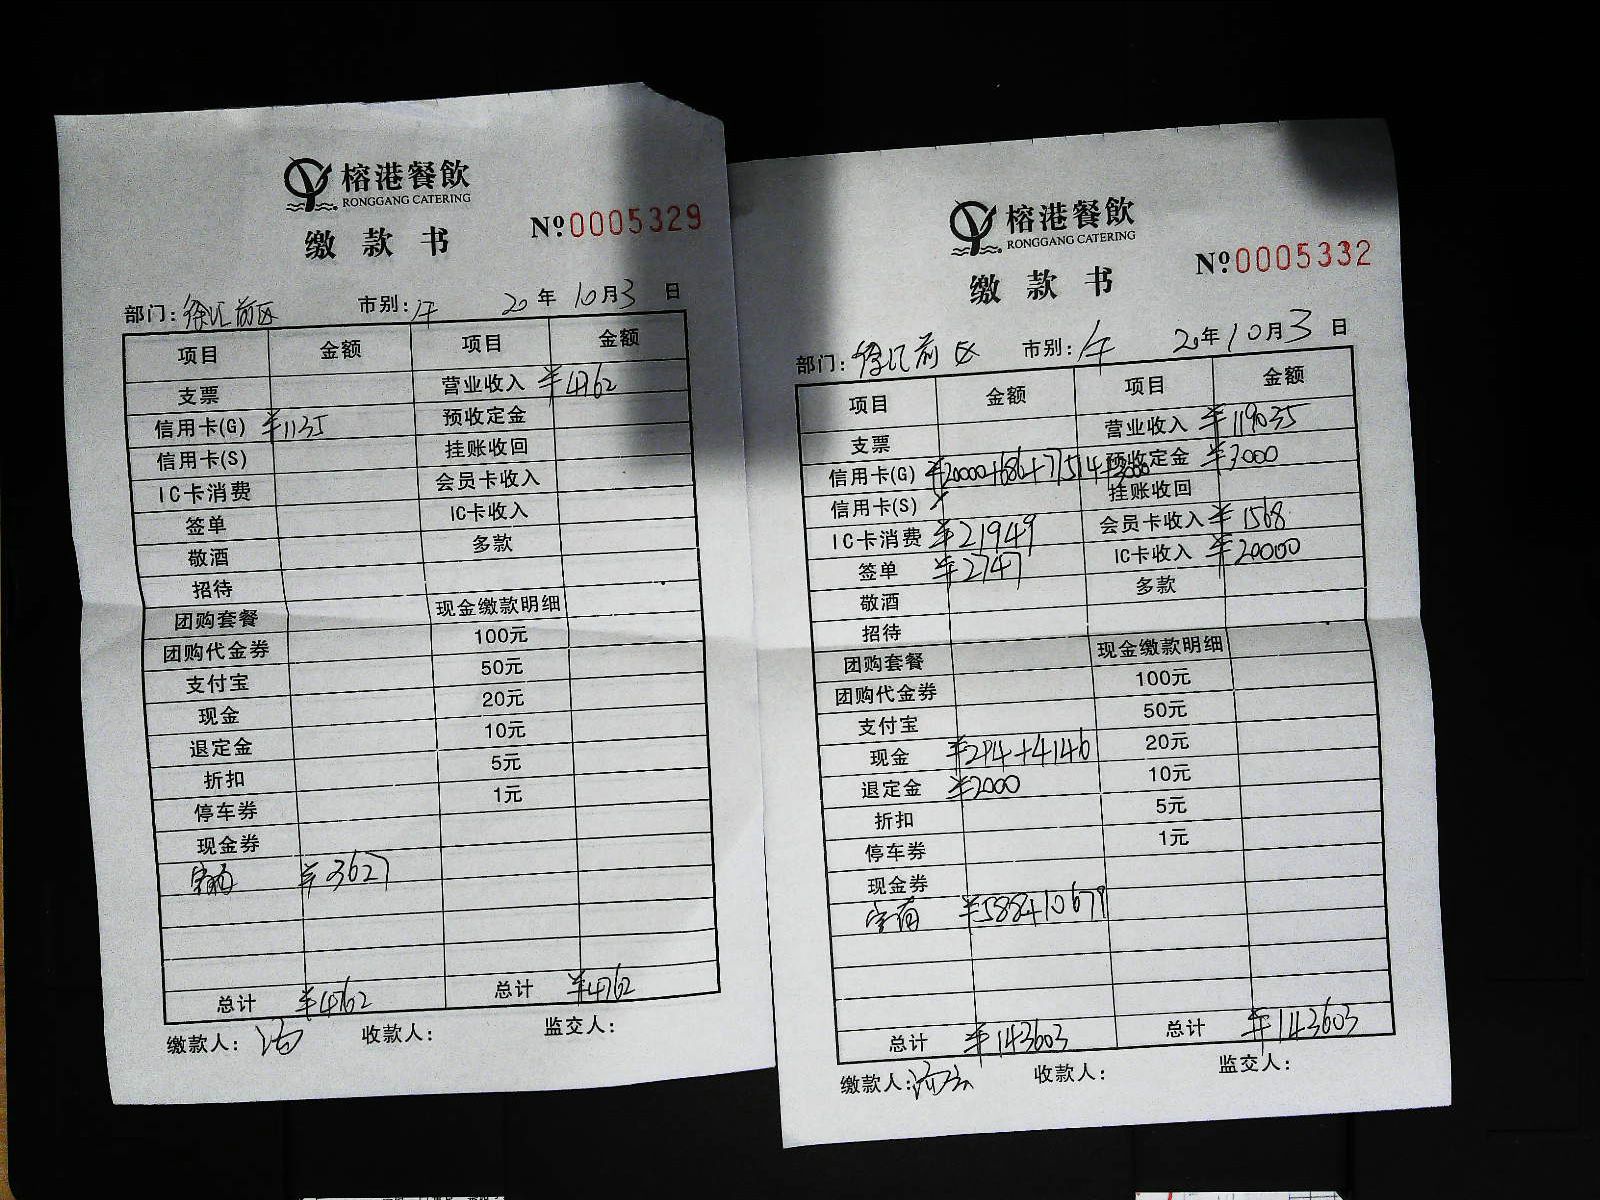 榕港餐飲
RONGGANG CATERING
缴款书 №0005329
部门: 徐汇前区 市别: 午 20年10月3日
项目 金额 项目 金额
支票 营业收入 ¥4762
信用卡(G) ¥1135 预收定金
信用卡(S) 挂账收回
IC卡消费 会员卡收入
签单 IC卡收入
敬酒 多款
招待
团购套餐 现金缴款明细
团购代金券 100元
支付宝 50元
现金 20元
退定金 10元
折扣 5元
停车券 1元
现金券
¥3627
总计 ¥4762 总计 ¥4762
缴款人: 收款人: 监交人:
榕港餐飲
RONGGANG CATERING
缴款书 №0005332
部门: 徐汇前区 市别: 午 20年10月3日
项目 金额 项目 金额
支票 营业收入 ¥119035
信用卡(G) ¥20000+686+77514+3000 预收定金 ¥3000
信用卡(S) 挂账收回
IC卡消费 ¥21949 会员卡收入 ¥1568
签单 ¥2747 IC卡收入 ¥20000
敬酒 多款
招待
团购套餐 现金缴款明细
团购代金券 100元
支付宝 50元
现金 ¥294+4146 20元
退定金 ¥2000 10元
折扣 5元
停车券 1元
现金券
¥588+10679
总计 ¥143603 总计 ¥143603
缴款人: 收款人: 监交人: